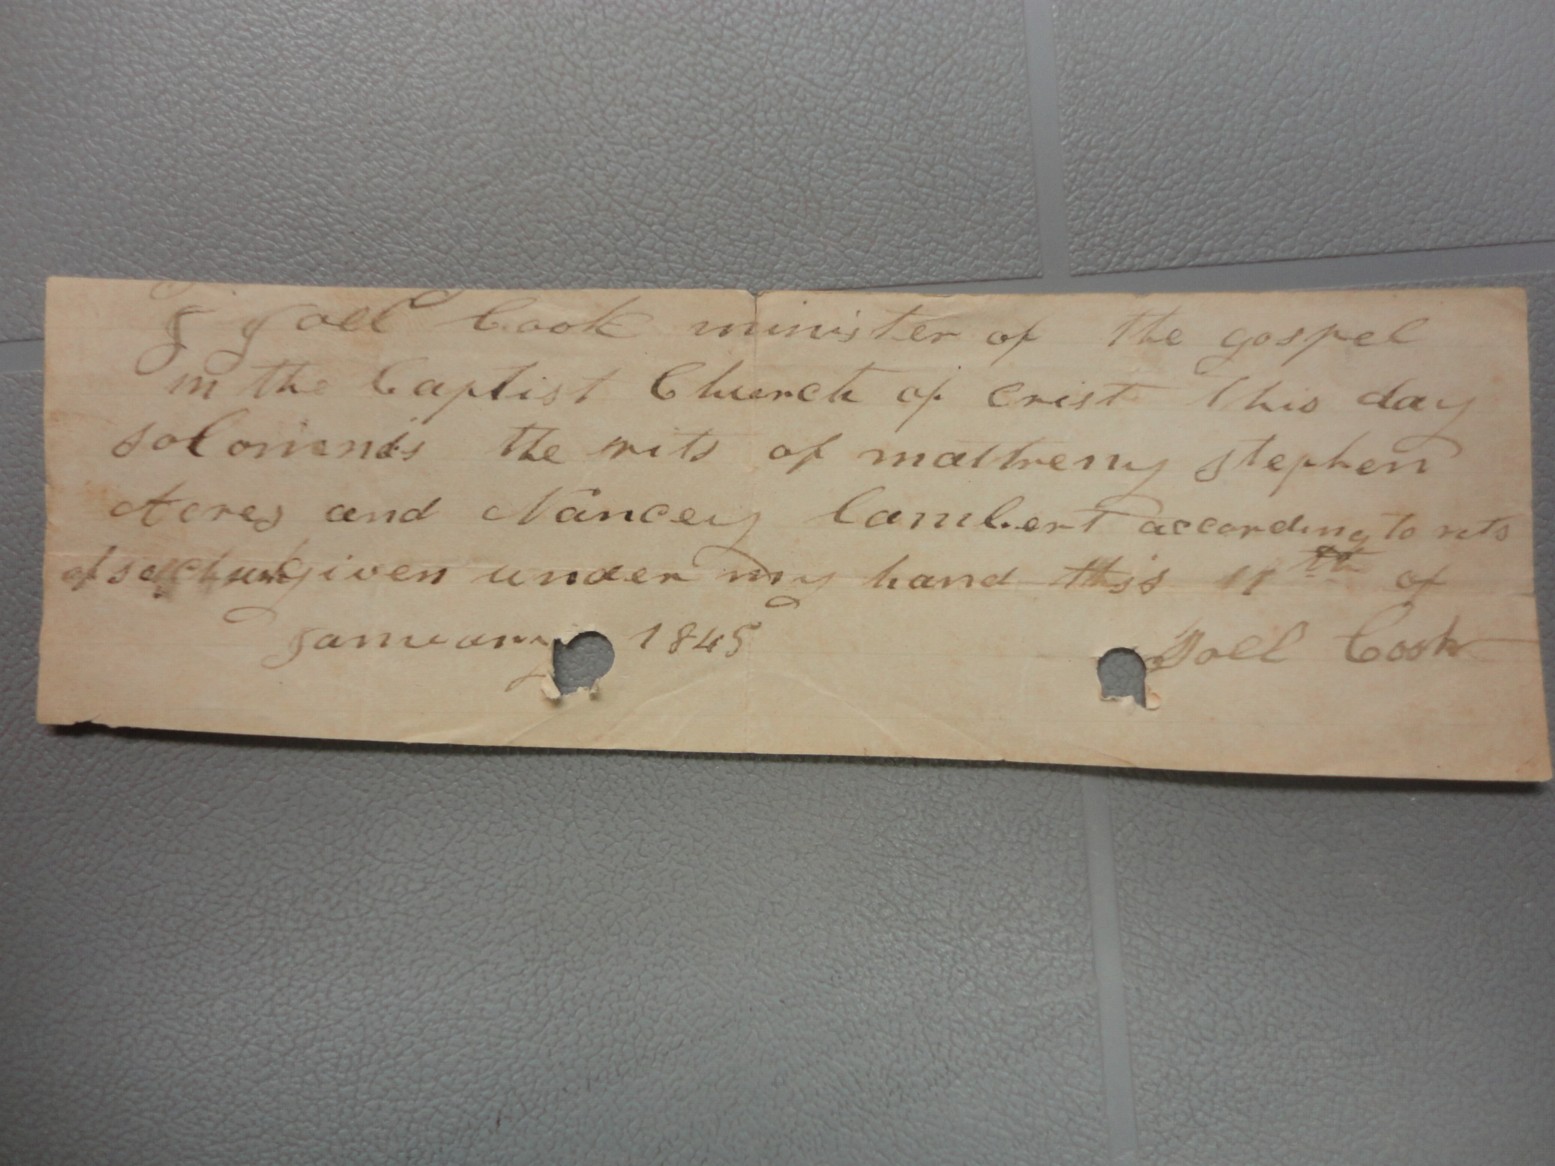 I Joel Cook minister of the gospel
in the Baptist Church of Crist this day
the rits of mattremy Stephen
Acres and Nancey Lambert according to rits
of sd church given under my hand this 11th of
January 1845 Joel Cook